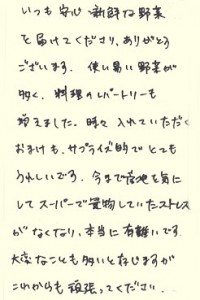 いつも安心、新鮮な野菜
を届けてくださり、ありがとう
ございます。使い易い野菜が
多く、料理のレパートリーも
増えました。時々入れていただく
おまけも、サプライズ的でとても
うれしいです。今まで産地を気に
してスーパーで買物していたストレス
がなくなり、本当に有難いです。
大変なことも多いと存じますが
これからも頑張ってください。